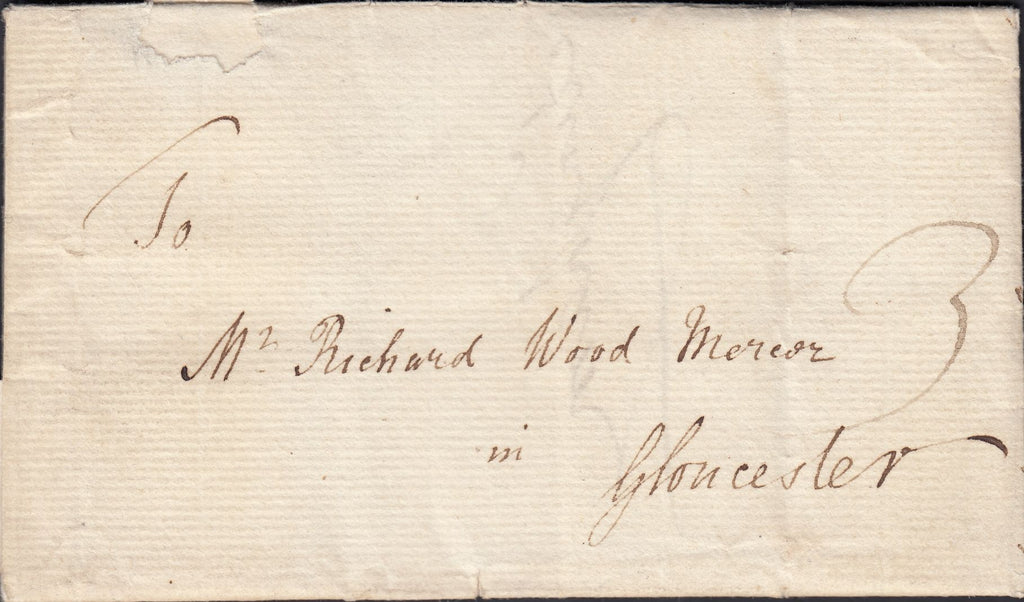 To
Mr Richard Wood Mercer
3
in Gloucester